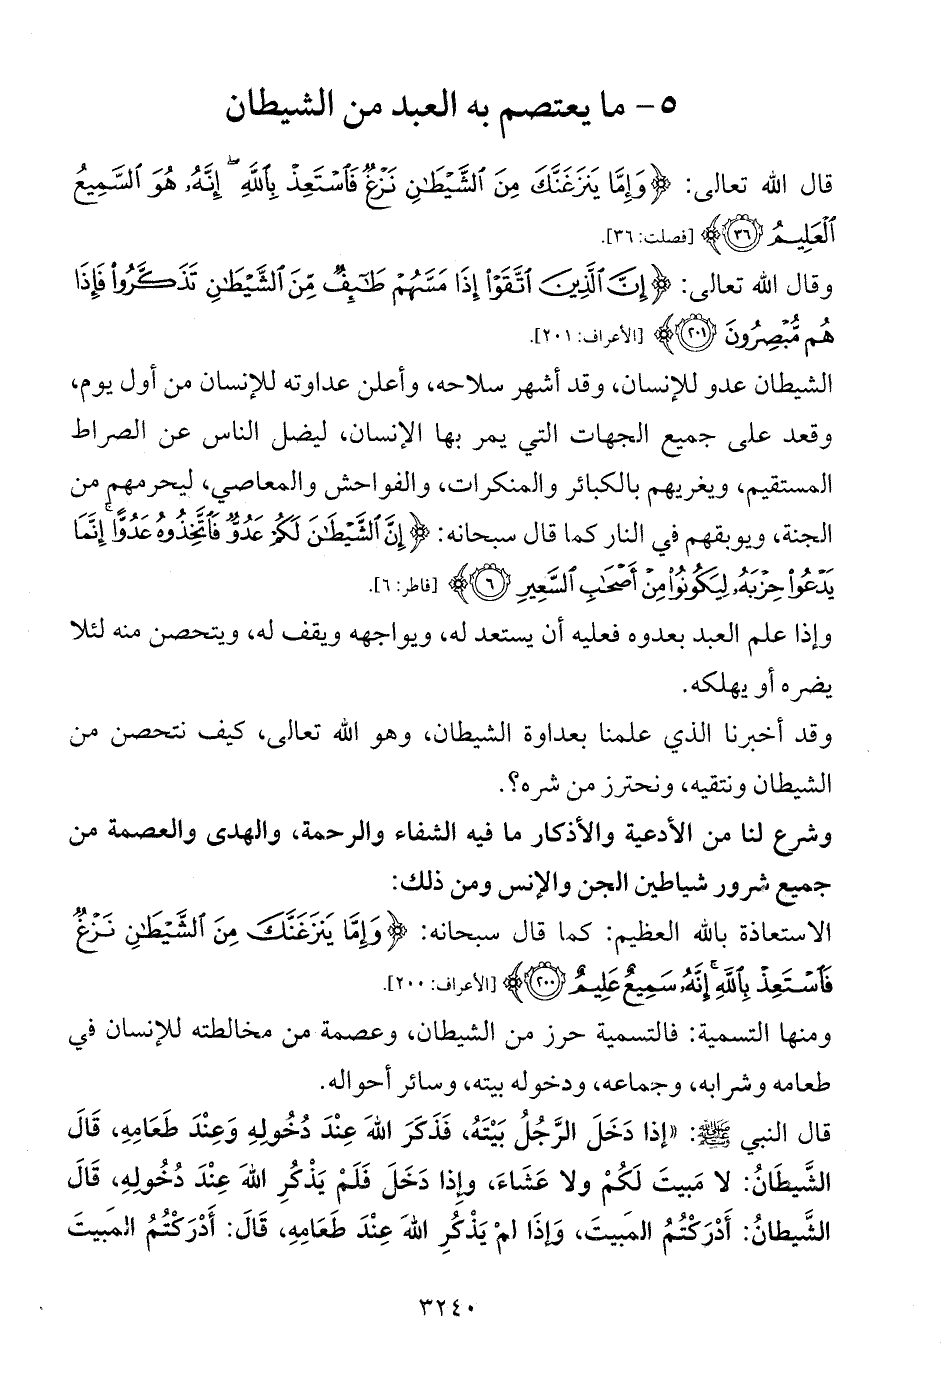 ٥- ما يعتصم به العبد من الشيطان
قال الله تعالى: ﴿وَإِمَّا يَنزَغَنَّكَ مِنَ ٱلشَّيْطَٰنِ نَزْغٌ فَٱسْتَعِذْ بِٱللَّهِ ۖ إِنَّهُۥ هُوَ ٱلسَّمِيعُ
ٱلْعَلِيمُ ٣٦﴾ [فصلت: ٣٦].
وقال الله تعالى: ﴿إِنَّ ٱلَّذِينَ ٱتَّقَوْا۟ إِذَا مَسَّهُمْ طَٰٓئِفٌ مِّنَ ٱلشَّيْطَٰنِ تَذَكَّرُوا۟ فَإِذَا
هُم مُّبْصِرُونَ ٢٠١﴾ [الأعراف: ٢٠١].
الشيطان عدو للإنسان، وقد أشهر سلاحه، وأعلن عداوته للإنسان من أول يوم،
وقعد على جميع الجهات التي يمر بها الإنسان، ليضل الناس عن الصراط
المستقيم، ويغريهم بالكبائر والمنكرات، والفواحش والمعاصي، ليحرمهم من
الجنة، ويوبقهم في النار كما قال سبحانه: ﴿إِنَّ ٱلشَّيْطَٰنَ لَكُمْ عَدُوٌّ فَٱتَّخِذُوهُ عَدُوًّا ۚ إِنَّمَا
يَدْعُوا۟ حِزْبَهُۥ لِيَكُونُوا۟ مِنْ أَصْحَٰبِ ٱلسَّعِيرِ ٦﴾ [فاطر: ٦].
وإذا علم العبد بعدوه فعليه أن يستعد له، ويواجهه ويقف له، ويتحصن منه لئلا
يضره أو يهلكه.
وقد أخبرنا الذي علمنا بعداوة الشيطان، وهو الله تعالى، كيف نتحصن من
الشيطان ونتقيه، ونحترز من شره؟.
وشرع لنا من الأدعية والأذكار ما فيه الشفاء والرحمة، والهدى والعصمة من
جميع شرور شياطين الجن والإنس ومن ذلك:
الاستعاذة بالله العظيم: كما قال سبحانه: ﴿وَإِمَّا يَنزَغَنَّكَ مِنَ ٱلشَّيْطَٰنِ نَزْغٌ
فَٱسْتَعِذْ بِٱللَّهِ ۚ إِنَّهُۥ سَمِيعٌ عَلِيمٌ ٢٠٠﴾ [الأعراف: ٢٠٠].
ومنها التسمية: فالتسمية حرز من الشيطان، وعصمة من مخالطته للإنسان في
طعامه وشرابه، وجماعه، ودخوله بيته، وسائر أحواله.
قال النبي ﷺ: «إذا دَخَلَ الرَّجُلُ بَيْتَهُ، فَذَكَرَ اللهَ عِنْدَ دُخُولِهِ وَعِنْدَ طَعَامِهِ، قَالَ
الشَّيطَانُ: لا مَبِيتَ لَكُمْ ولا عَشَاءَ، وإذا دَخَلَ فَلَمْ يَذْكُرِ اللهَ عِنْدَ دُخُولِهِ، قَالَ
الشَّيطانُ: أَدْرَكْتُمُ المَبيتَ، وَإذَا لمْ يَذْكُرِ اللهَ عِنْدَ طَعَامِهِ، قَالَ: أَدْرَكْتُمُ المَبيتَ
٣٢٤٠